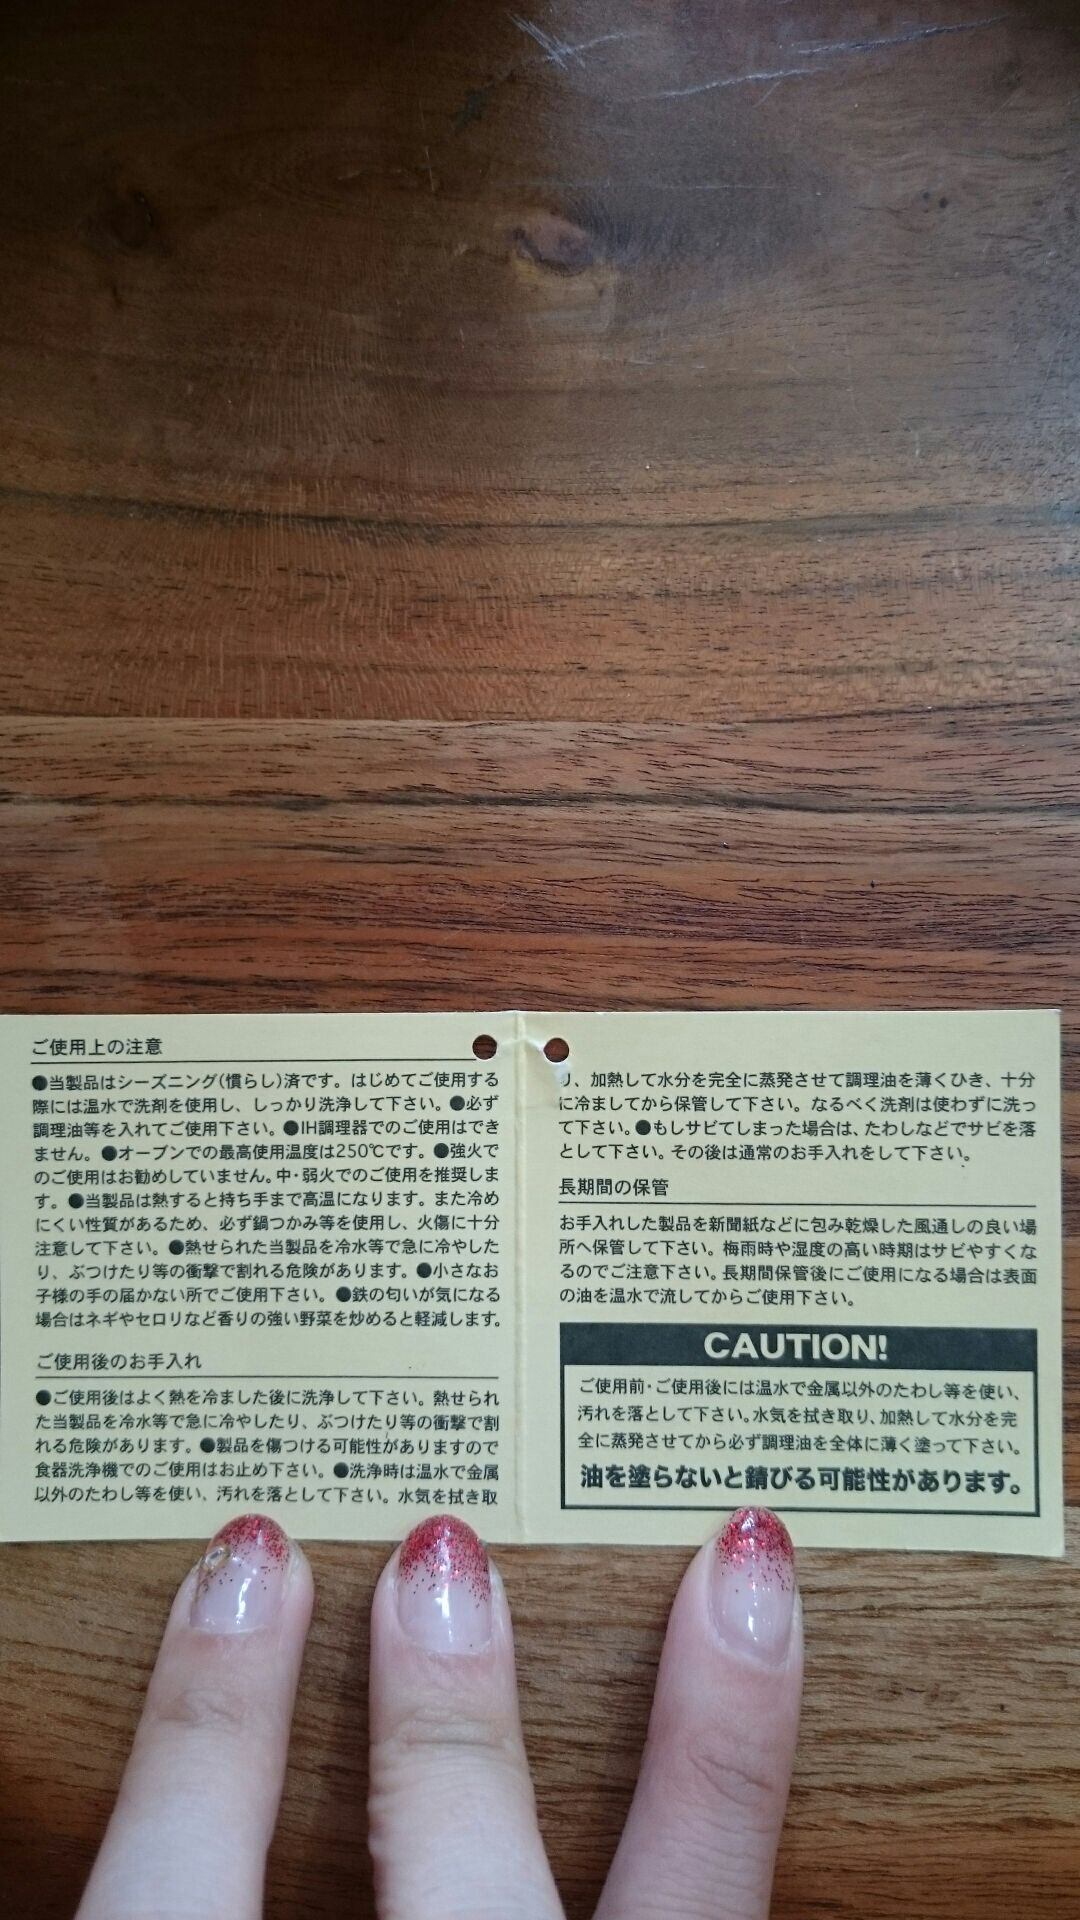 ご使用上の注意
●当製品はシーズニング(慣らし)済です。はじめてご使用する
際には温水で洗剤を使用し、しっかり洗浄して下さい。●必ず
調理油等を入れてご使用下さい。●IH調理器でのご使用はでき
ません。●オーブンでの最高使用温度は250℃です。●強火で
のご使用はお勧めしていません。中・弱火でのご使用を推奨しま
す。●当製品は熱すると持ち手まで高温になります。また冷め
にくい性質があるため、必ず鍋つかみ等を使用し、火傷に十分
注意して下さい。●熱せられた当製品を冷水等で急に冷やした
り、ぶつけたり等の衝撃で割れる危険があります。●小さなお
子様の手の届かない所でご使用下さい。●鉄の匂いが気になる
場合はネギやセロリなど香りの強い野菜を炒めると軽減します。
ご使用後のお手入れ
●ご使用後はよく熱を冷ました後に洗浄して下さい。熱せられ
た当製品を冷水等で急に冷やしたり、ぶつけたり等の衝撃で割
れる危険があります。●製品を傷つける可能性がありますので
食器洗浄機でのご使用はお止め下さい。●洗浄時は温水で金属
以外のたわし等を使い、汚れを落として下さい。水気を拭き取
り、加熱して水分を完全に蒸発させて調理油を薄くひき、十分
に冷ましてから保管して下さい。なるべく洗剤は使わずに洗っ
て下さい。●もしサビてしまった場合は、たわしなどでサビを落
として下さい。その後は通常のお手入れをして下さい。
長期間の保管
お手入れした製品を新聞紙などに包み乾燥した風通しの良い場
所へ保管して下さい。梅雨時や湿度の高い時期はサビやすくな
るのでご注意下さい。長期間保管後にご使用になる場合は表面
の油を温水で流してからご使用下さい。
CAUTION!
ご使用前・ご使用後には温水で金属以外のたわし等を使い、
汚れを落として下さい。水気を拭き取り、加熱して水分を完
全に蒸発させてから必ず調理油を全体に薄く塗って下さい。
油を塗らないと錆びる可能性があります。